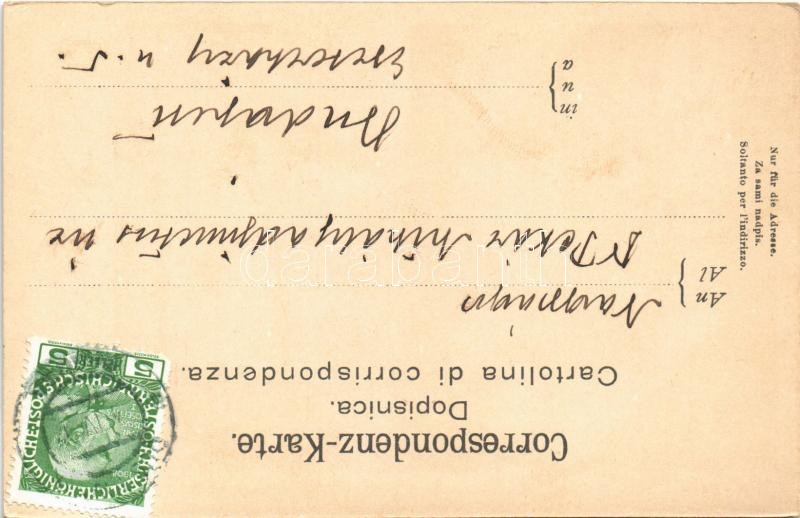 Correspondenz-Karte.
Dopisnica.
Cartolina di corrispondenza.
An
Al
Nagyságos
Dr Pekár Mihály adjunctus úr
in
u
a
Budapest
Eszterházy u. 5.
Nur für die Adresse.
Za sami nadpis.
Soltanto per l'indirizzo.
KAISERLICHE KÖNIGLICHE
ÖSTERREICHISCHE POST
5 5
1908
darabanth